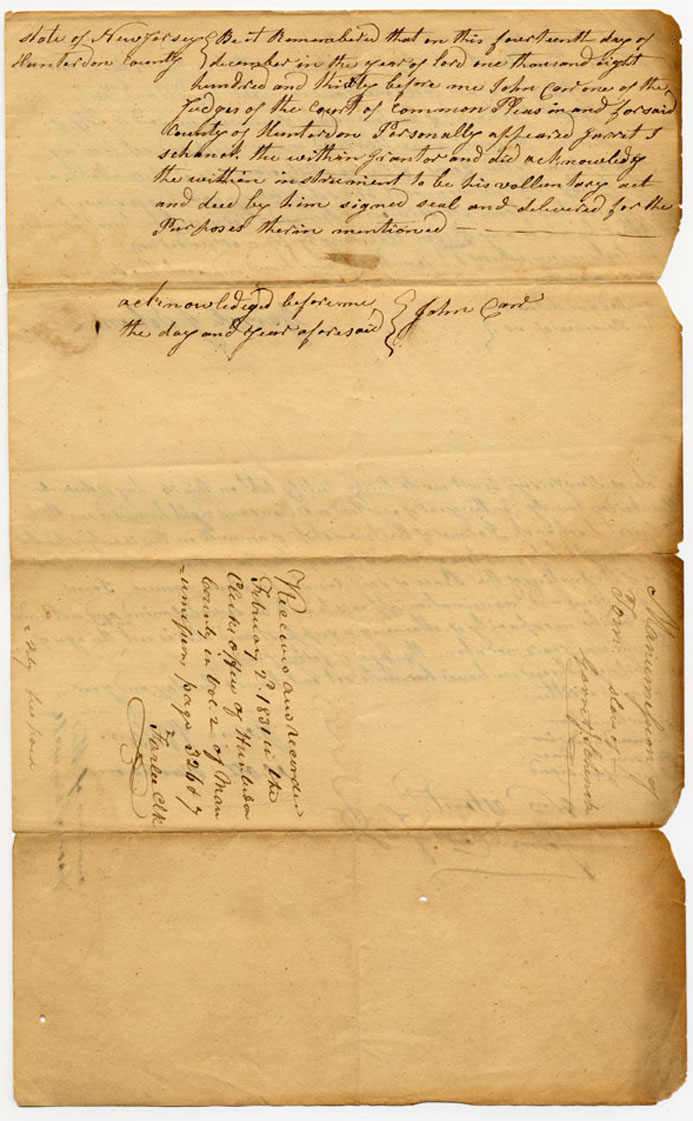 State of New Jersey { Be it Remembered that on this fourteenth day of
Hunterdon County { december in the year of lord one thousand eight
hundred and thirty before me John Carr one of the
Judges of the Court of Common Pleas in and for said
County of Hunterdon Personally appeared Garret I
Schanck the within Grantor and did acknowledg
the within instrument to be his volluntary act
and deed by him signed seal and delivered for the
Purposes therin mentioned
acknowledged before me } John Carr
the day and year aforesaid }
Manumission of
Tom slave of
Garret Schanck
Received and recorded
February 2d. 1831 in the
Clerks office of Hunterdon
County in Vol. 2 of Man
=umission, page 326 & 7
Farlee Clk